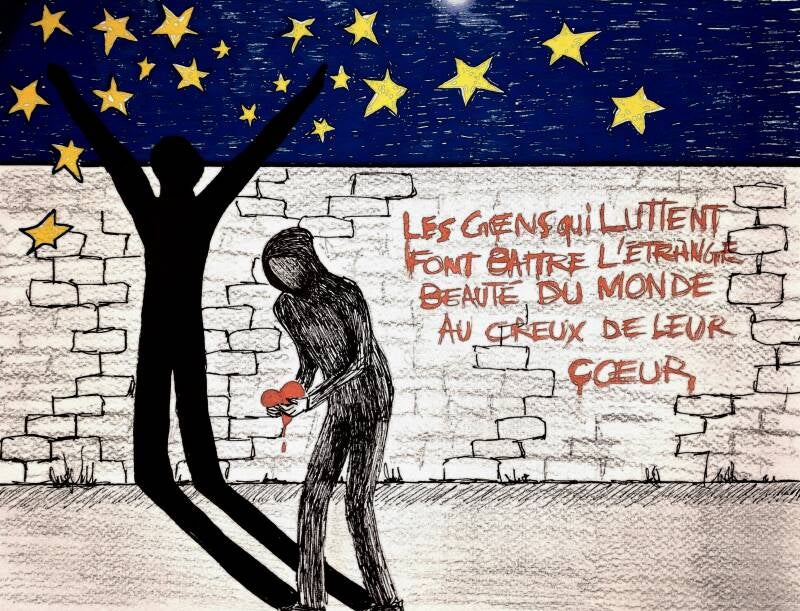 LES GENS QUi LUTTENT
FONT BATTRE L'ÉTRANGE
BEAUTÉ DU MONDE
AU CREUX DE LEUR
CŒUR